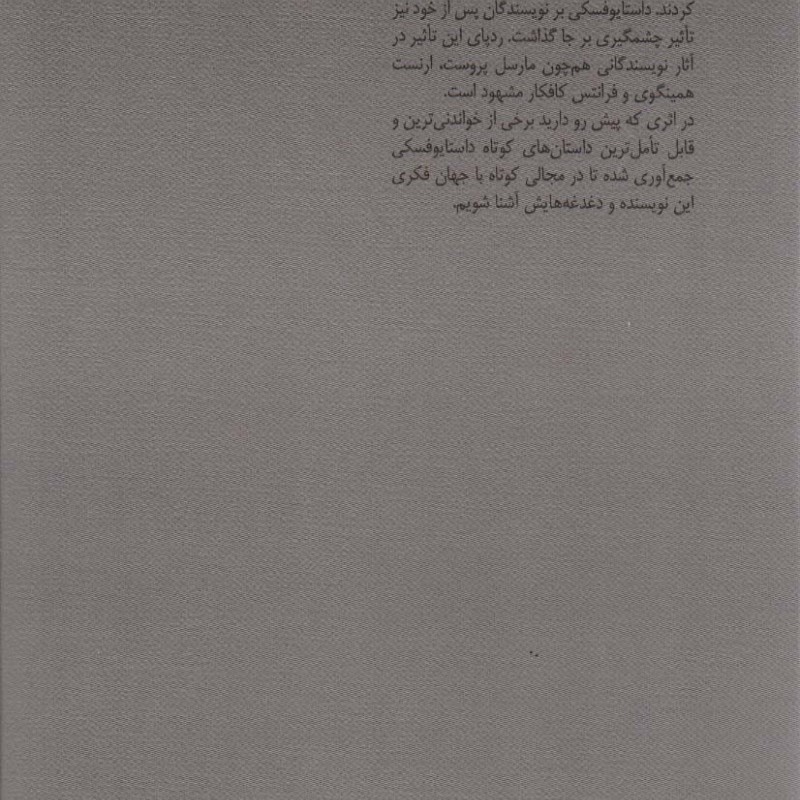 کردند. داستایوفسکی بر نویسندگان پس از خود نیز
تأثیر چشمگیری بر جا گذاشت. ردپای این تأثیر در
آثار نویسندگانی هم‌چون مارسل پروست، ارنست
همینگوی و فرانتس کافکار مشهود است.
در اثری که پیش رو دارید برخی از خواندنی‌ترین و
قابل تأمل‌ترین داستان‌های کوتاه داستایوفسکی
جمع‌آوری شده تا در مجالی کوتاه با جهان فکری
این نویسنده و دغدغه‌هایش آشنا شویم.